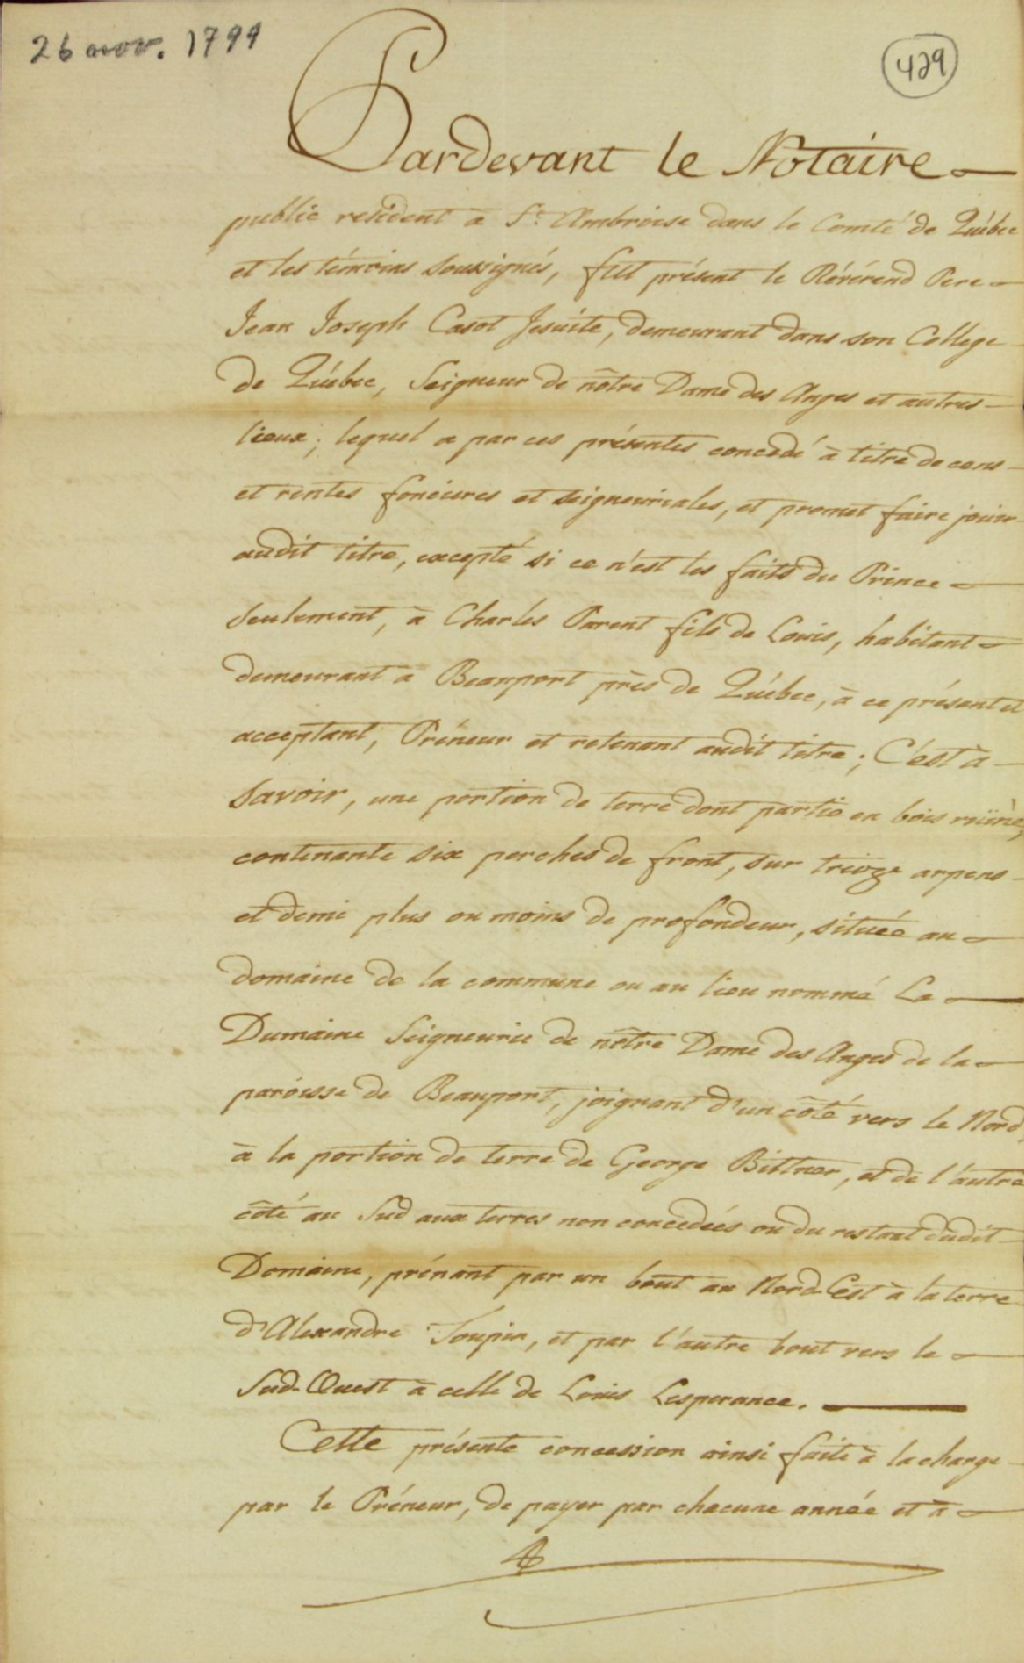 26 nov. 1799
429
Pardevant le Notaire
public résident à St. Ambroise dans le Comté de Québec
et les témoins soussignés, fût présent le Révérend Pere
Jean Joseph Casot Jesuite, demeurant dans son College
de Québec, Seigneur de nôtre Dame des Anges et autres
lieux; lequel a par ces présentes concédé à titre de cens
et rentes foncieres et seigneuriales, et promet faire jouir
audit titre, excepté si ce n'est les faits du Prince
seulement, à Charles Parent fils de Louis, habitant
demeurant à Beauport près de Québec, à ce présent et
acceptant, Préneur et retenant audit titre; C'est à
savoir, une portion de terre dont partie en bois
contenante six perches de front, sur treize arpens
et demi plus ou moins de profondeur, située au
domaine de la commune ou au lieu nommé Le
Dumaine Seigneurie de nôtre Dame des Anges de la
paroisse de Beauport, joignant d'un côté vers le Nord,
à la portion de terre de George Bittner, et de l'autre
côté au Sud aux terres non concédées ou du restant dudit
Domaine, prénant par un bout au Nord-Est à la terre
d'Alexandre Toupin, et par l'autre bout vers le
Sud-Ouest à celle de Louis Lesperance.
Cette présente concession ainsi faite à la charge
par le Préneur, de payer par chacune année et à